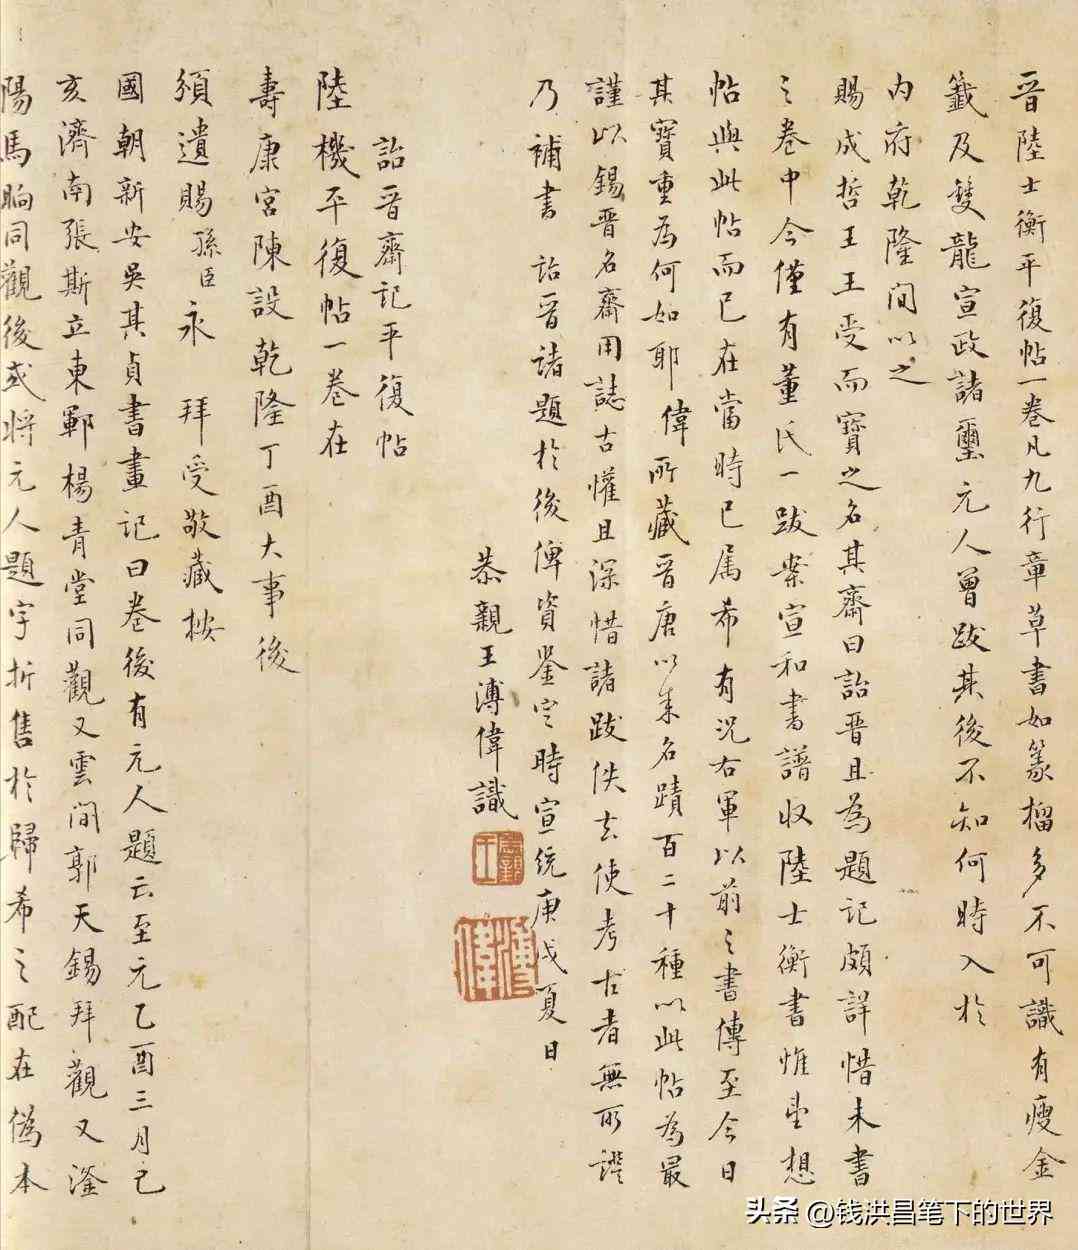 晉陸士衡平復帖一卷凡九行章草書如篆籀多不可識有瘦金
籤及雙龍宣政諸璽元人曾跋其後不知何時入於
內府乾隆間以之
賜成哲王王受而寶之名其齋曰詒晉且為題記頗詳惜未書
之卷中今僅有董氏一跋案宣和書譜收陸士衡書惟此想
帖與此帖而已在當時已屬希有況右軍以前之書傳至今日
其寶重為何如耶偉所藏晉唐以來名蹟百二十種以此帖為最
謹以錫晉名齋用誌古懽且深惜諸跋佚去使考古者無所證
乃補書詒晉諸題於後俾資鉴定時宣統庚戌夏日
恭親王溥偉識
恭親王
溥偉
詒晉齋記平復帖
陸機平復帖一卷在
壽康宮陳設乾隆丁酉大事後
頒遺賜孫臣永 拜受敬藏按
國朝新安吳其貞書畫記曰卷後有元人題云至元乙酉三月己
亥濟南張斯立東鄆楊青堂同觀又雲間郭天錫拜觀又滏
陽馬晌同觀後或將元人題字折售於歸希之配在偽本
头条 @钱洪昌笔下的世界